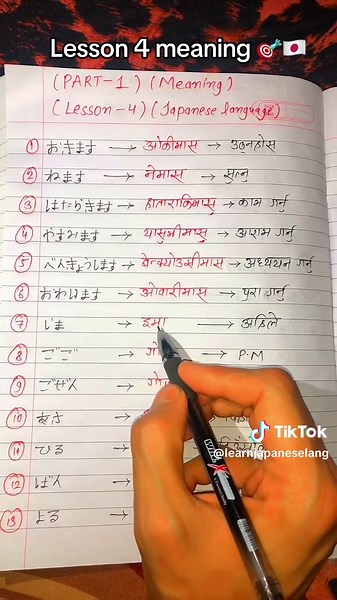 Lesson 4 meaning 🎯🇯🇵
(PART-1) (Meaning)
(Lesson-4) (Japanese language)
① おきます → ओकीमास → उठ्नुहोस
② ねます → नेमास → सुत्नु
③ はたらきます → हाताराकिमास → काम गर्नु
④ やすみます → यासुमीमासु → आराम गर्नु
⑤ べんきょうします → बेन्क्योउसीमास → अध्ययन गर्नु
⑥ おわります → ओवारीमास → पुरा गर्नु
⑦ いま → इमा → अहिले
⑧ ごご → गो → P.M
⑨ ごぜん → गो
⑩ あさ →
⑪ ひる →
⑫ ばん →
⑬ よる →
TikTok
@learnjapaneselang